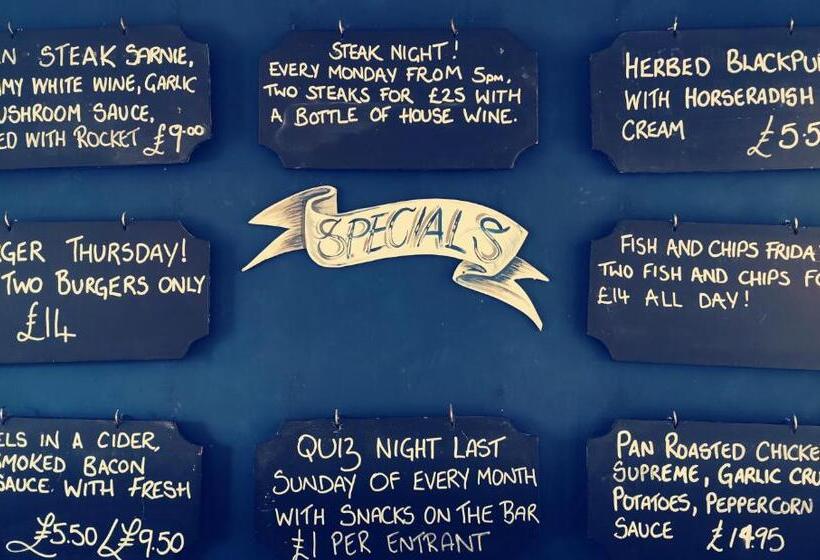 STEAK SARNIE,
WHITE WINE, GARLIC
SAUCE,
WITH ROCKET £9.00
STEAK NIGHT!
EVERY MONDAY FROM 5pm,
TWO STEAKS FOR £25 WITH
A BOTTLE OF HOUSE WINE.
HERBED
WITH HORSERADISH
CREAM £5.5
SPECIALS
THURSDAY!
TWO BURGERS ONLY
£14
FISH AND CHIPS
TWO FISH AND CHIPS
£14 ALL DAY!
IN A CIDER,
SMOKED BACON
SAUCE. WITH FRESH
£5.50/£9.50
QUIZ NIGHT LAST
SUNDAY OF EVERY MONTH
WITH SNACKS ON THE BAR
£1 PER ENTRANT
PAN ROASTED
SUPREME, GARLIC
POTATOES, PEPPERCORN
SAUCE £14.95